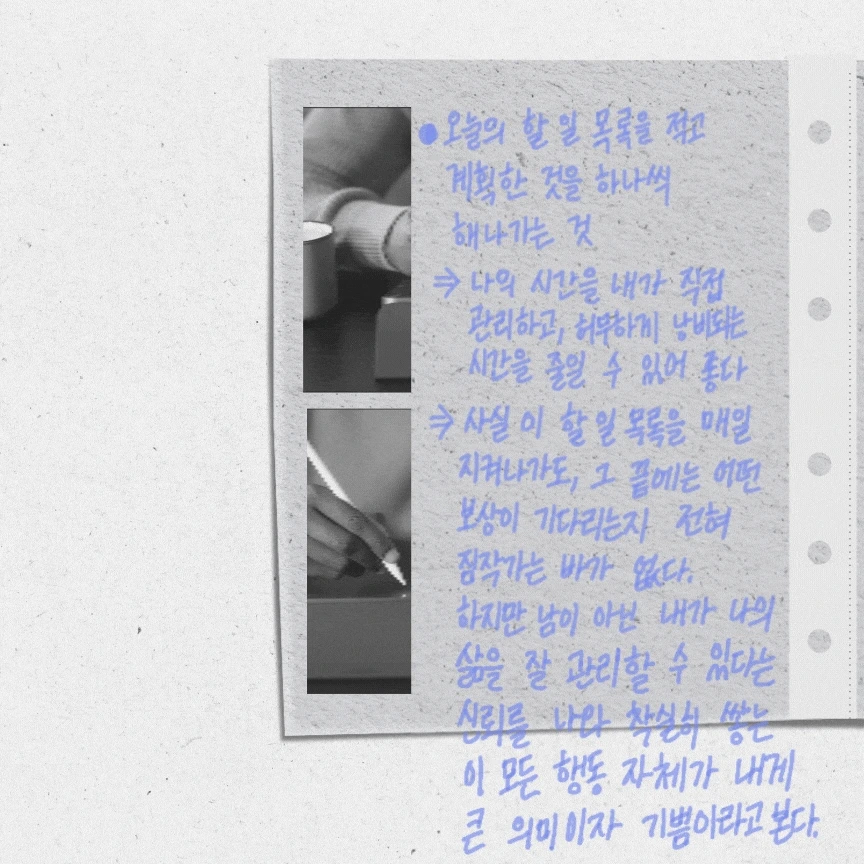 ● 오늘의 할 일 목록을 적고
계획한 것을 하나씩
해나가는 것
⇒ 나의 시간을 내가 직접
관리하고, 허무하게 낭비되는
시간을 줄일 수 있어 좋다
⇒ 사실 이 할 일 목록을 매일
지켜나가도, 그 끝에는 어떤
보상이 기다리는지 전혀
짐작가는 바가 없다.
하지만 남이 아닌 내가 나의
삶을 잘 관리할 수 있다는
신뢰를 나와 착실히 쌓는
이 모든 행동 자체가 내게
큰 의미이자 기쁨이라고 본다.